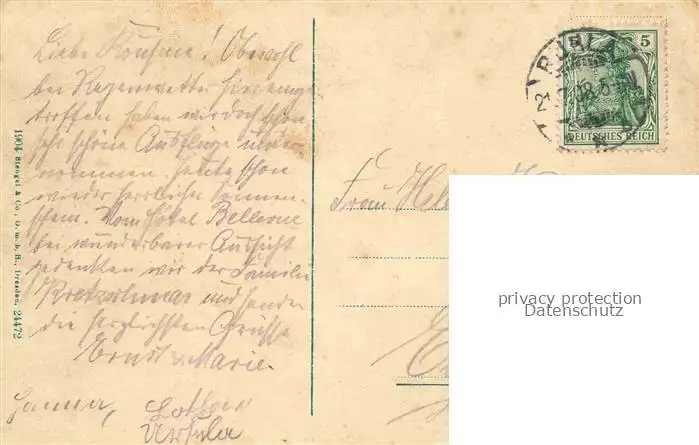 Liebe Kousine! Obwohl
bei Regenwetter hier einge-
troffen haben wir doch schon
sehr schöne Ausflüge unter-
nommen. Heute schon
wieder herrlicher Sonnen-
schein. Vom Hôtel Bellevue
bei wunderbarer Aussicht
gedenken wir der Familie
Kretzschmar und senden
die herzlichsten Grüsse
Ernst & Marie.
Hanna, Lothar
Ursula
1904 Stengel & Co., G. m. b. H., Dresden 24472
RUHLA
5
DEUTSCHES REICH
Frau
privacy protection
Datenschutz